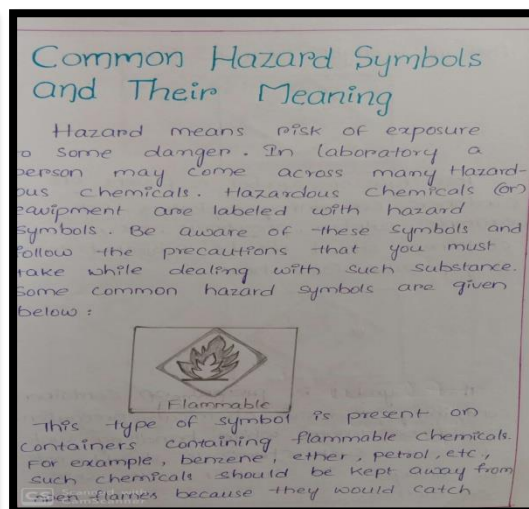 Common Hazard Symbols
and Their Meaning
Hazard means risk of exposure
to some danger. In laboratory a
person may come across many Hazard-
ous chemicals. Hazardous chemicals (or)
equipment are labeled with hazard
symbols. Be aware of these symbols and
follow the precautions that you must
take while dealing with such substance.
Some common hazard symbols are given
below :
Flammable
This type of symbol is present on
containers containing flammable chemicals.
For example, benzene, ether, petrol, etc,
such chemicals should be kept away from
open flames because they would catch
CS